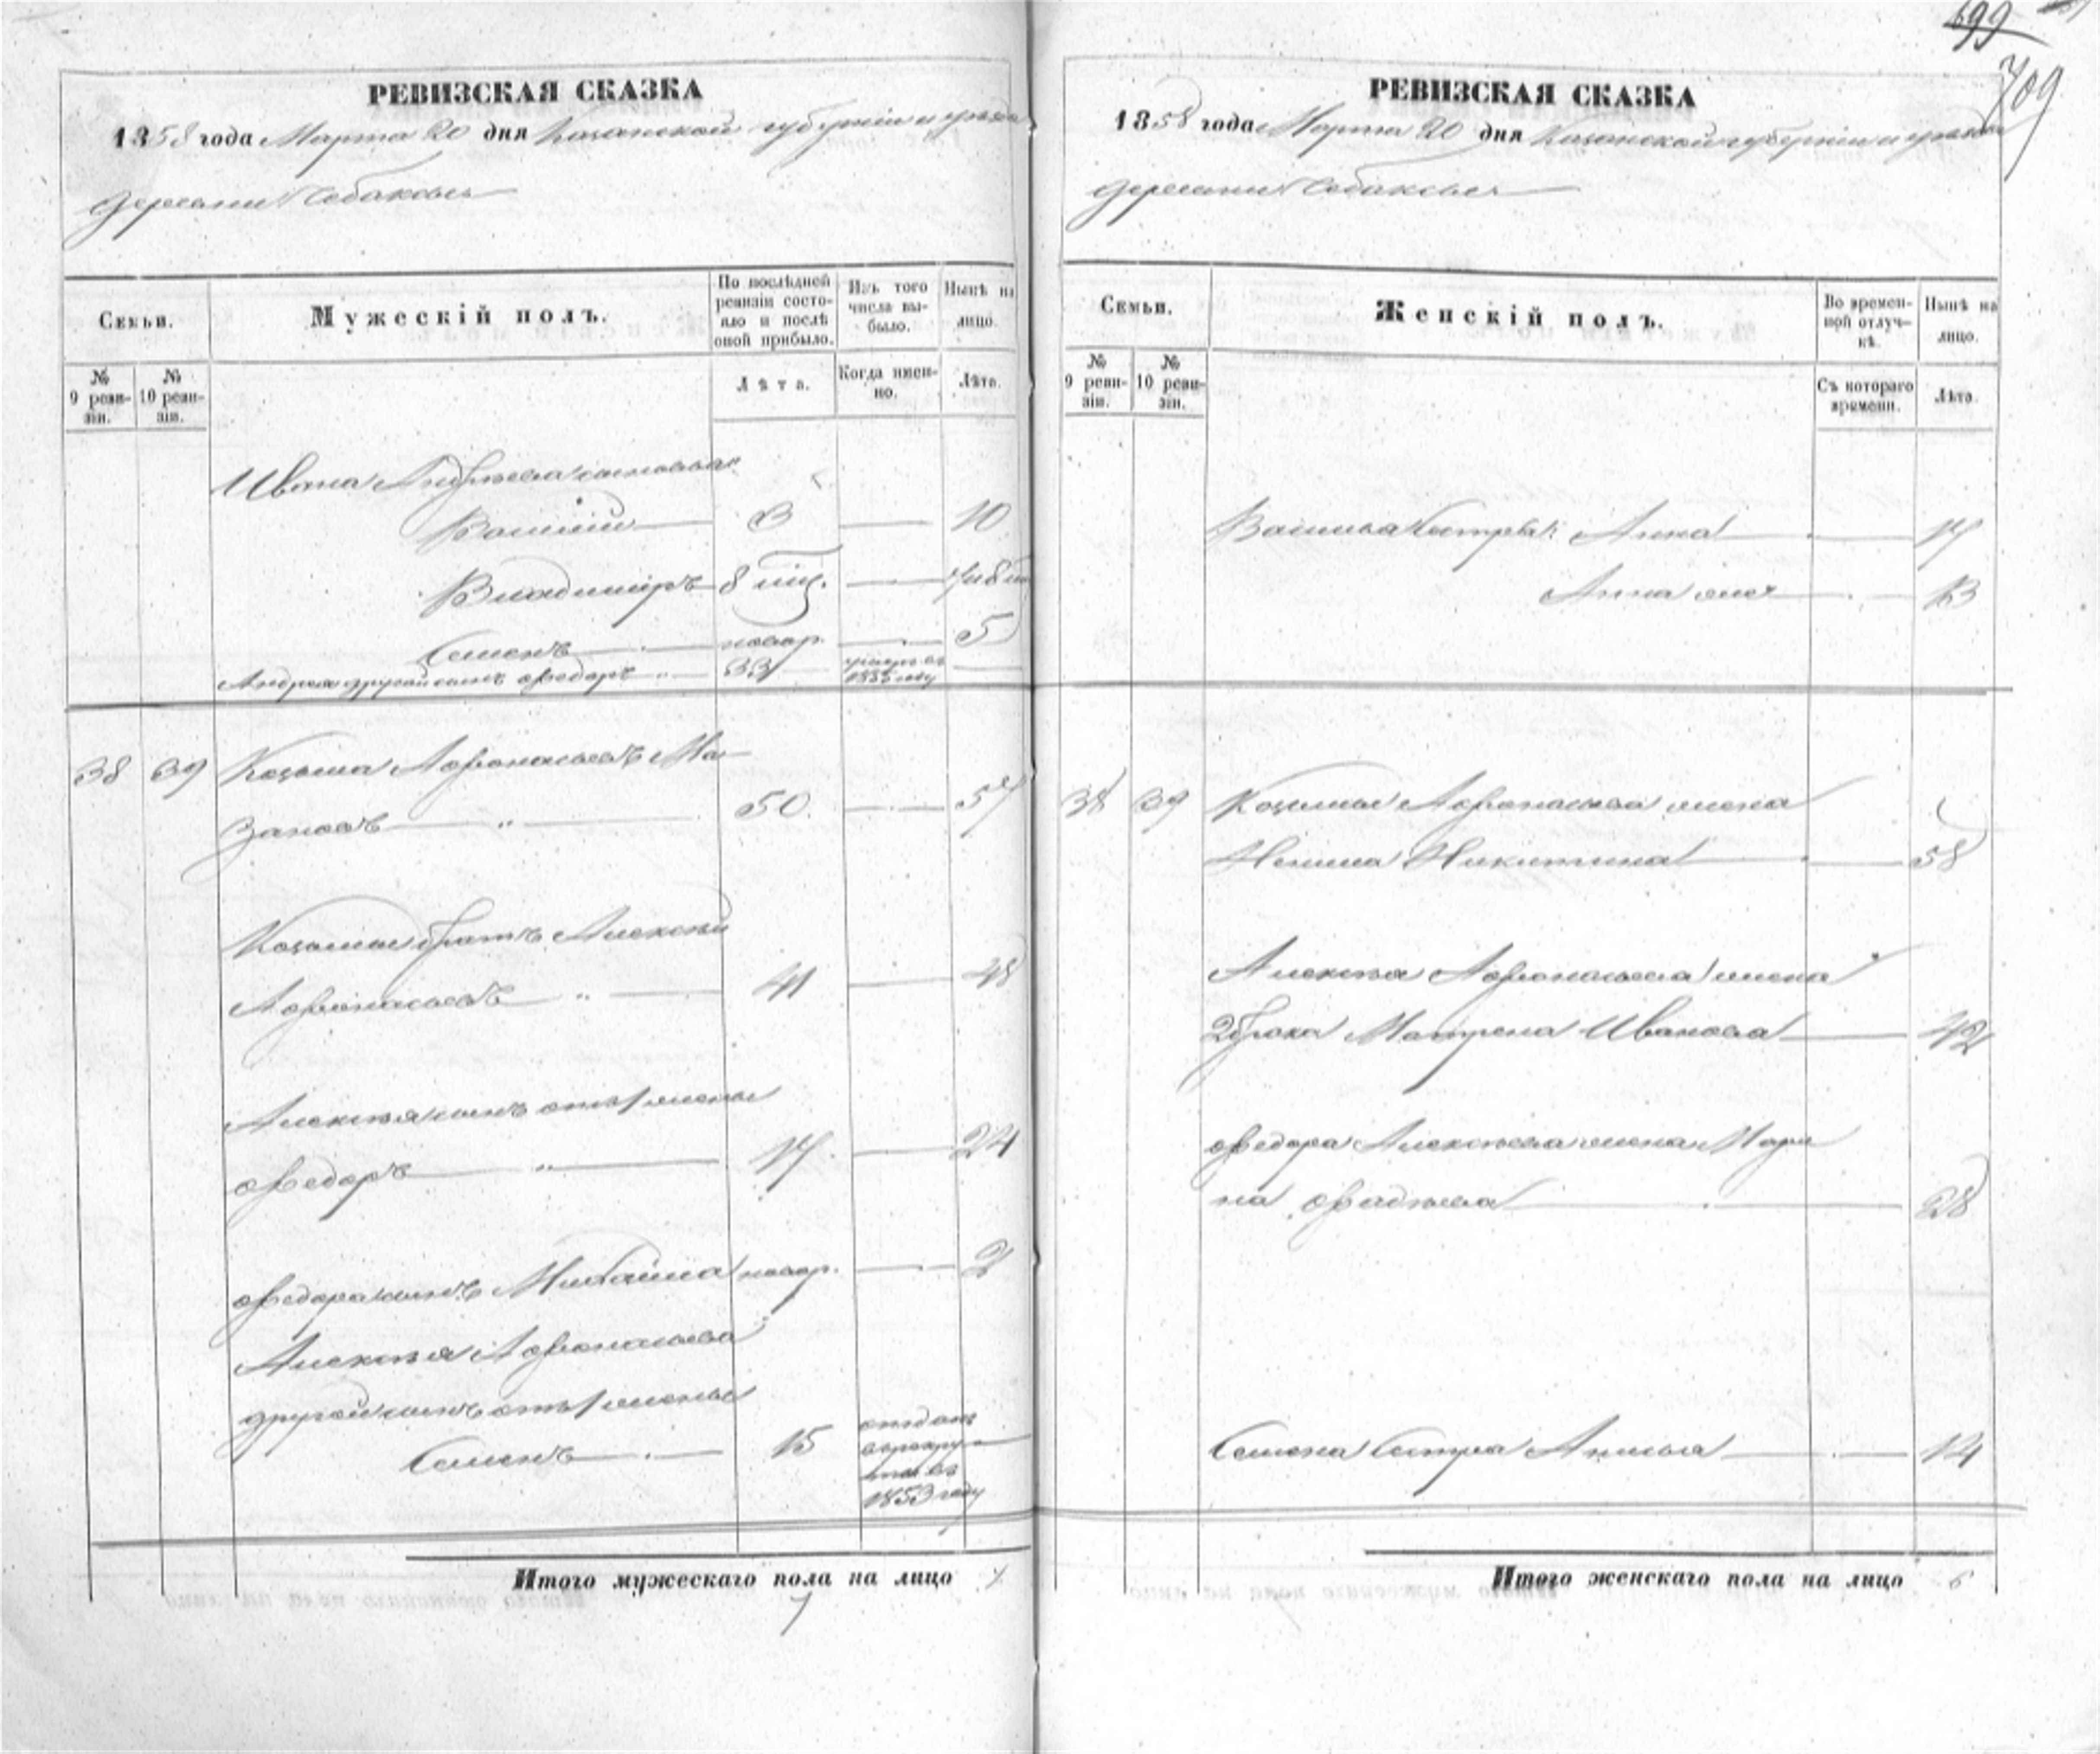 РЕВИЗСКАЯ СКАЗКА
1858 года Марта 20 дня Казанской губерніи и уѣзда
деревни
Семьи.
№ 9 ревизіи.
№ 10 ревизіи.
Мужескій полъ.
По послѣдней ревизіи состояло и послѣ оной прибыло.
Лѣта.
Изъ того числа выбыло.
Когда именно.
Нынѣ на лицо.
Лѣта.
Ивана Андреева сыновья
Василій 3 10
Владиміръ 8 мѣс.
Семенъ новор. 5
Андрея другой сынъ Федоръ 33
38 39 Козьма Афонасьевъ Ма-
зановъ 50. 57
Козьмы братъ Алексѣй
Афонасьевъ 41 48
Алексѣя сынъ отъ 1 жены
Федоръ 17. 24
Федора сынъ Михайла новор. 2
Алексѣя Афонасьева
другой сынъ отъ 1 жены
Семенъ 15 отданъ
въ рекру-
ты въ
1853 году
Итого мужескаго пола на лицо 7
7
699
709
РЕВИЗСКАЯ СКАЗКА
1858 года Марта 20 дня Казанской губерніи и уѣзда
деревни
Семьи.
№ 9 ревизіи.
№ 10 ревизіи.
Женскій полъ.
Во временной отлучкѣ.
Съ котораго времени.
Нынѣ на лицо.
Лѣта.
Василья Сестры: Анна 17
Анна 13
38 39 Козьмы Афонасьева жена
Никитина 58
Алексѣя Афонасьева жена
2 брака Матрена Иванова 42
Федора Алексѣева жена Мари
на Фадѣева 28
Семена Сестра 14
Итого женскаго пола на лицо 6